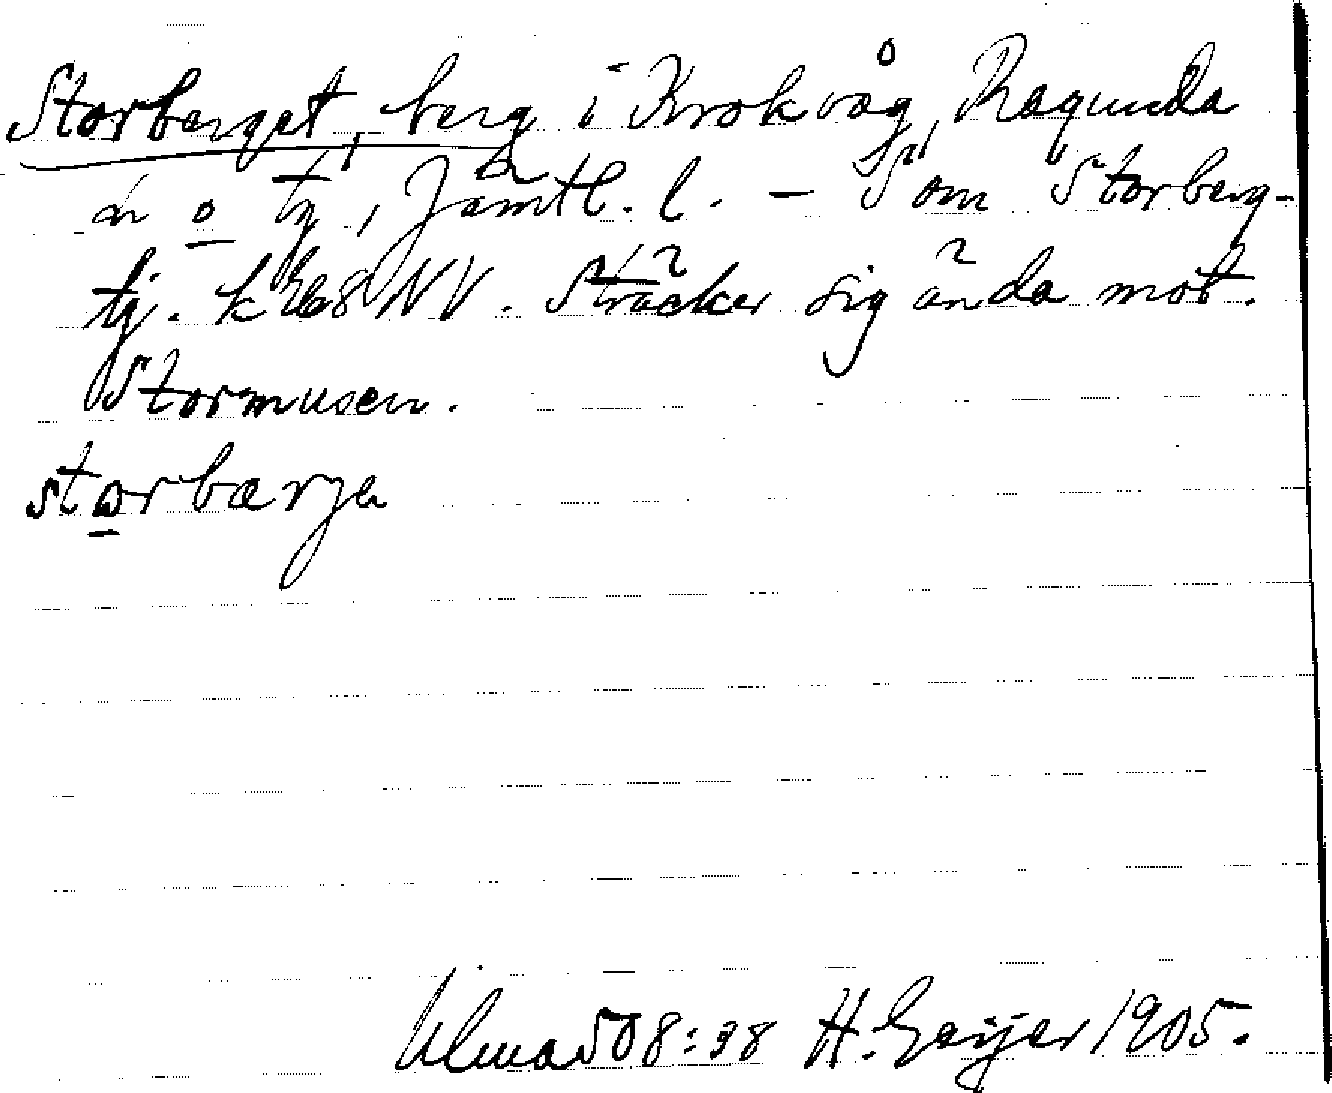 Storberget, berg i Krokvåg, Ragunda
sn o tg, Jämtl. l. – Som Storberg-
tj. k 868 NV. Sträcker sig ända mot.
Stormusen.
storbærja
Ulma 508:38 H. Geijer 1905.